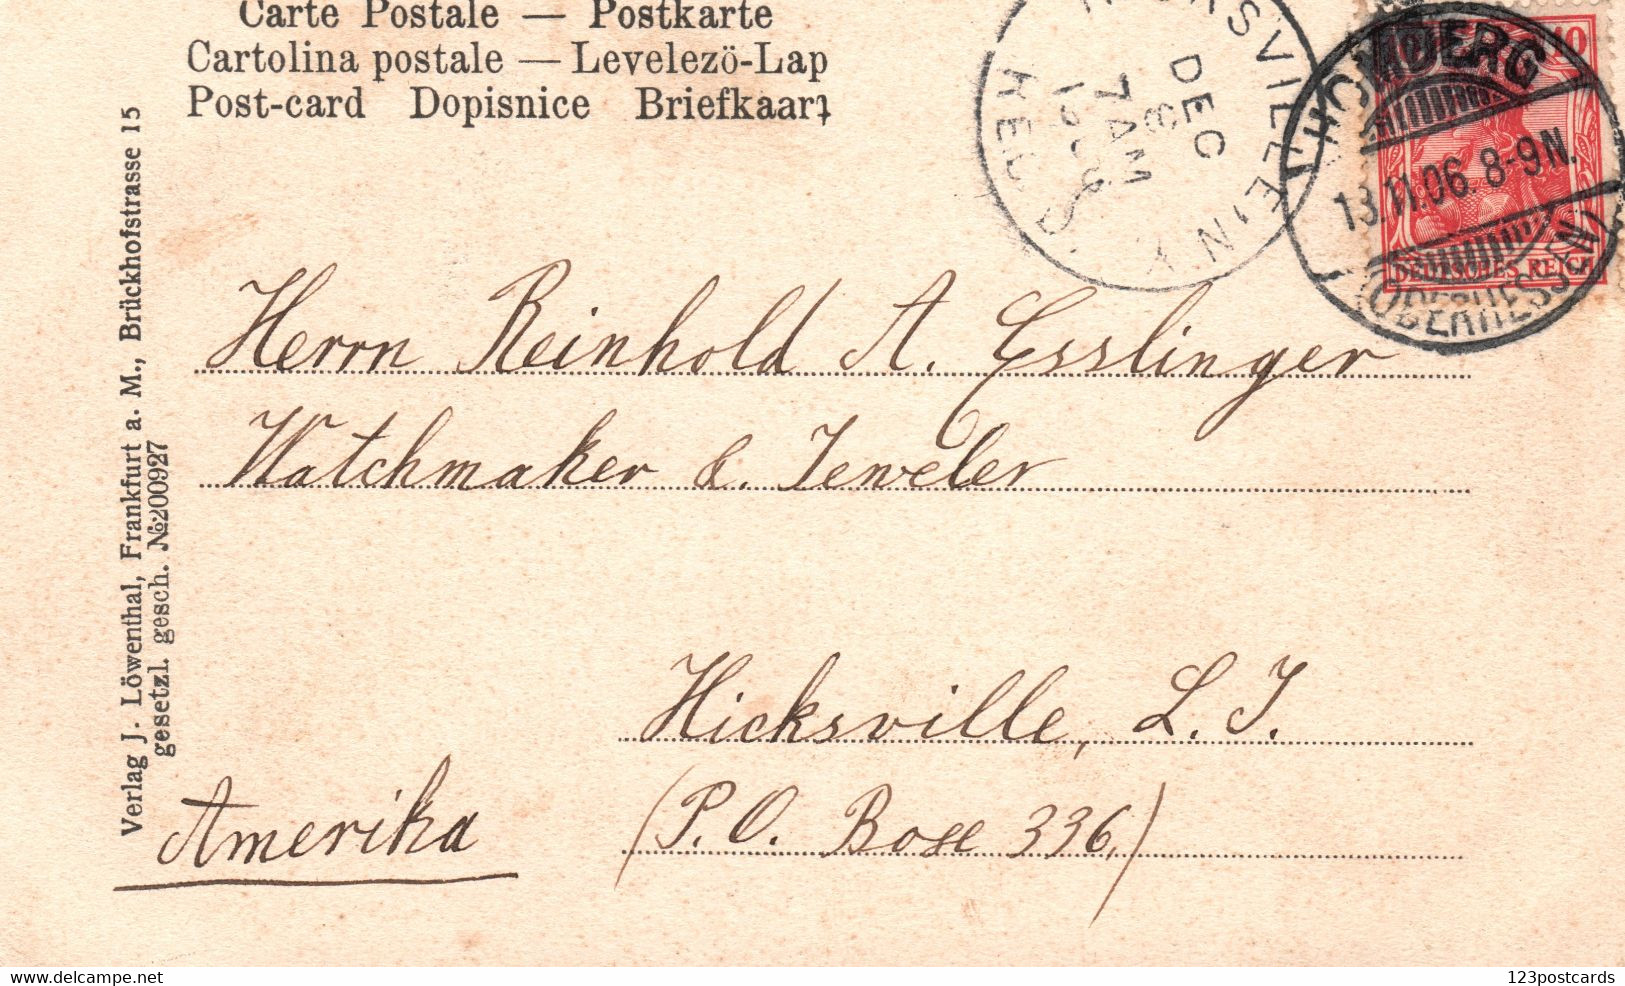 Carte Postale — Postkarte
Cartolina postale — Levelező-Lap
Post-card Dopisnice Briefkaart
Verlag J. Löwenthal, Frankfurt a. M., Brückhofstrasse 15
gesetzl. gesch. No. 200927
HICKSVILLE, N.Y.
DEC
8
7 AM
REC'D.
HOMBERG
13.11.06. 8-9 N.
(OBERHESSEN)
10
DEUTSCHES REICH
Herrn Reinhold A. Esslinger
Watchmaker & Jeweler
Hicksville, L. I.
(P. O. Box 336.)
Amerika
delcampe.net
123postcards